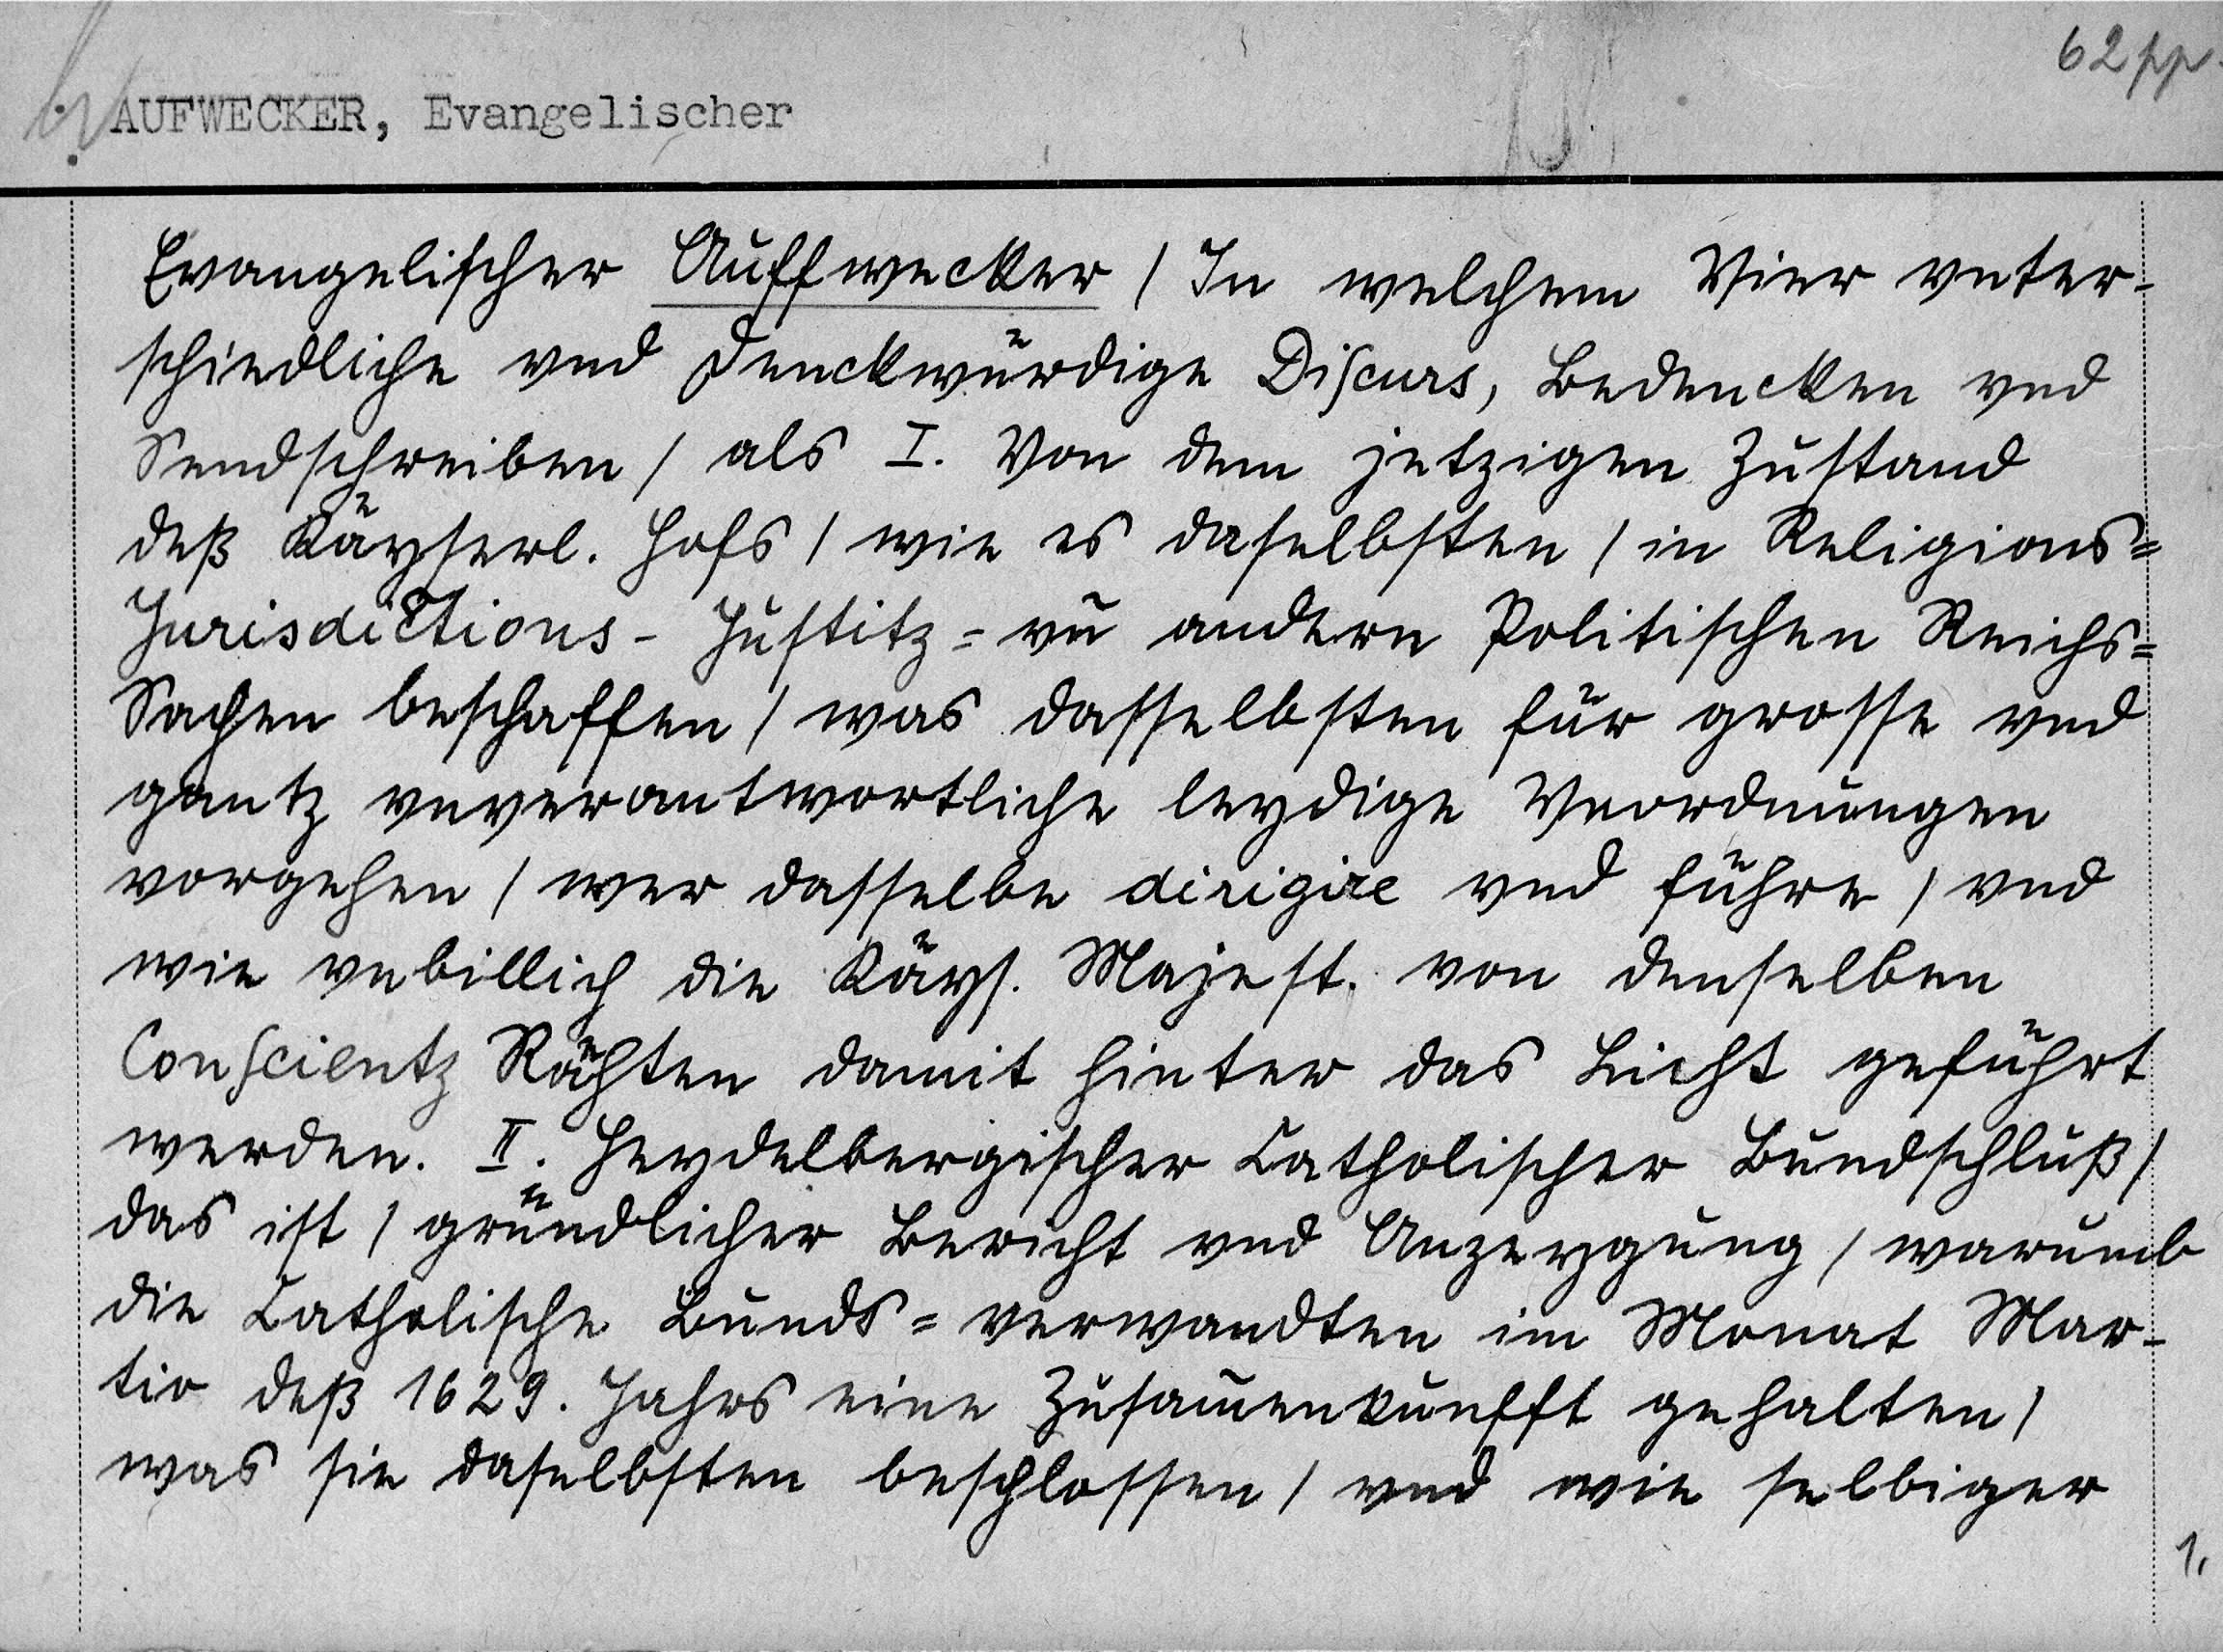 62 pp.
AUFWECKER, Evangelischer
Evangelischer Auffwecker / In welchem Vier vnter-
schiedliche vnd Denckwürdige Discurs, Bedencken vnd
Sendschreiben / als I. Von dem jetzigen Zustand
deß Käyserl. Hofs / wie es daselbsten / in Religions=
Jurisdictions- Justitz = vn̄ andern Politischen Reichs=
Sachen beschaffen / was dasselbsten für grosse vnd
gantz vnverantwortliche leydige Vnordnungen
vorgehen / wer dasselbe dirigire vnd führe / vnd
wie vnbillich die Käys. Majest. von denselben
Conscientz Rähten damit hinter das Licht geführt
werden. II. Heydelbergischer Catholischer Bundschluß /
das ist / gründlicher Bericht vnd Anzeygung / warumb
die Catholische Bunds = verwandten im Monat Mar-
tio deß 1629. Jahrs eine Zusam̄enkunfft gehalten /
was sie daselbsten beschlossen / vnd wie selbiger
1.